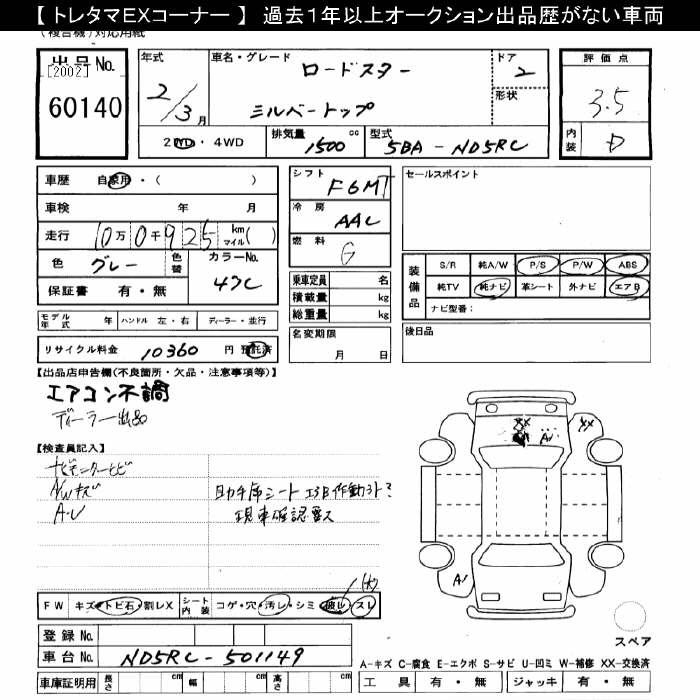 【 トレタマEXコーナー 】 過去1年以上オークション出品歴がない車両
(複合機)対応用紙
出品No.
[2002]
60140
年式
2/3月
車名・グレード
ロードスター
シルバートップ
ドア
2
形状
評価点
3.5
内装
D
2WD・4WD
排気量
1500 cc
型式
5BA-ND5RC
車歴 自家用・( )
車検 年 月
走行 10万0千925 km マイル( )
色 グレー 色替 カラーNo. 47C
保証書 有・無
シフト F6MT
冷房 AAC
燃料 G
乗車定員 名
積載量 kg
総重量 kg
セールスポイント
装備品
S/R 純A/W P/S P/W ABS
純TV 純ナビ 革シート 外ナビ エアB
ナビ型番:
モデル年式 年 ハンドル 左・右 ディーラー・並行
名変期限
月 日
後日品
リサイクル料金 10360 円 預託済
【出品店申告欄(不良箇所・欠品・注意事項等)】
エアコン不調
ディーラー出品
【検査員記入】
A/Wキズ
A・U
助手席シート エアB作動分?
現車確認要ス
XX
A/
XX
A/
FW キズ・トビ石・割レX シート内装 コゲ・穴・汚レ・シミ・破レ・スレ
(大)
登録No.
車台No. ND5RC-501149
車庫証明用 長さ cm 幅 cm 高さ cm
スペア
A-キズ C-腐食 E-エクボ S-サビ U-凹ミ W-補修 XX-交換済
工具 有・無 ジャッキ 有・無